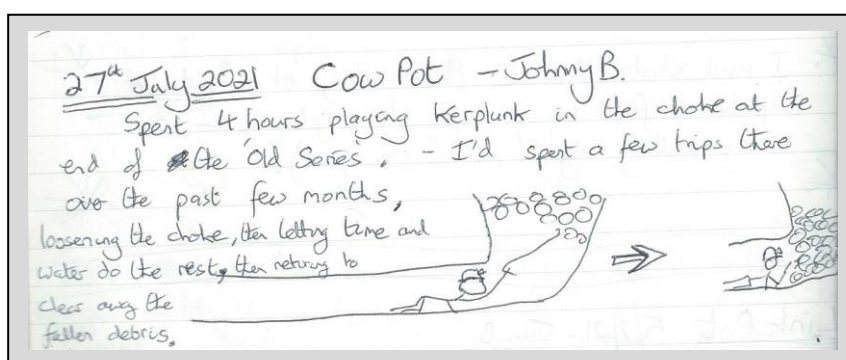 27th July 2021 Cow Pot - Johnny B.
Spent 4 hours playing Kerplunk in the choke at the
end of the 'Old Series'. - I'd spent a few trips there
over the past few months,
loosening the choke, then letting time and
water do the rest, then returing to
clear away the
fallen debris.